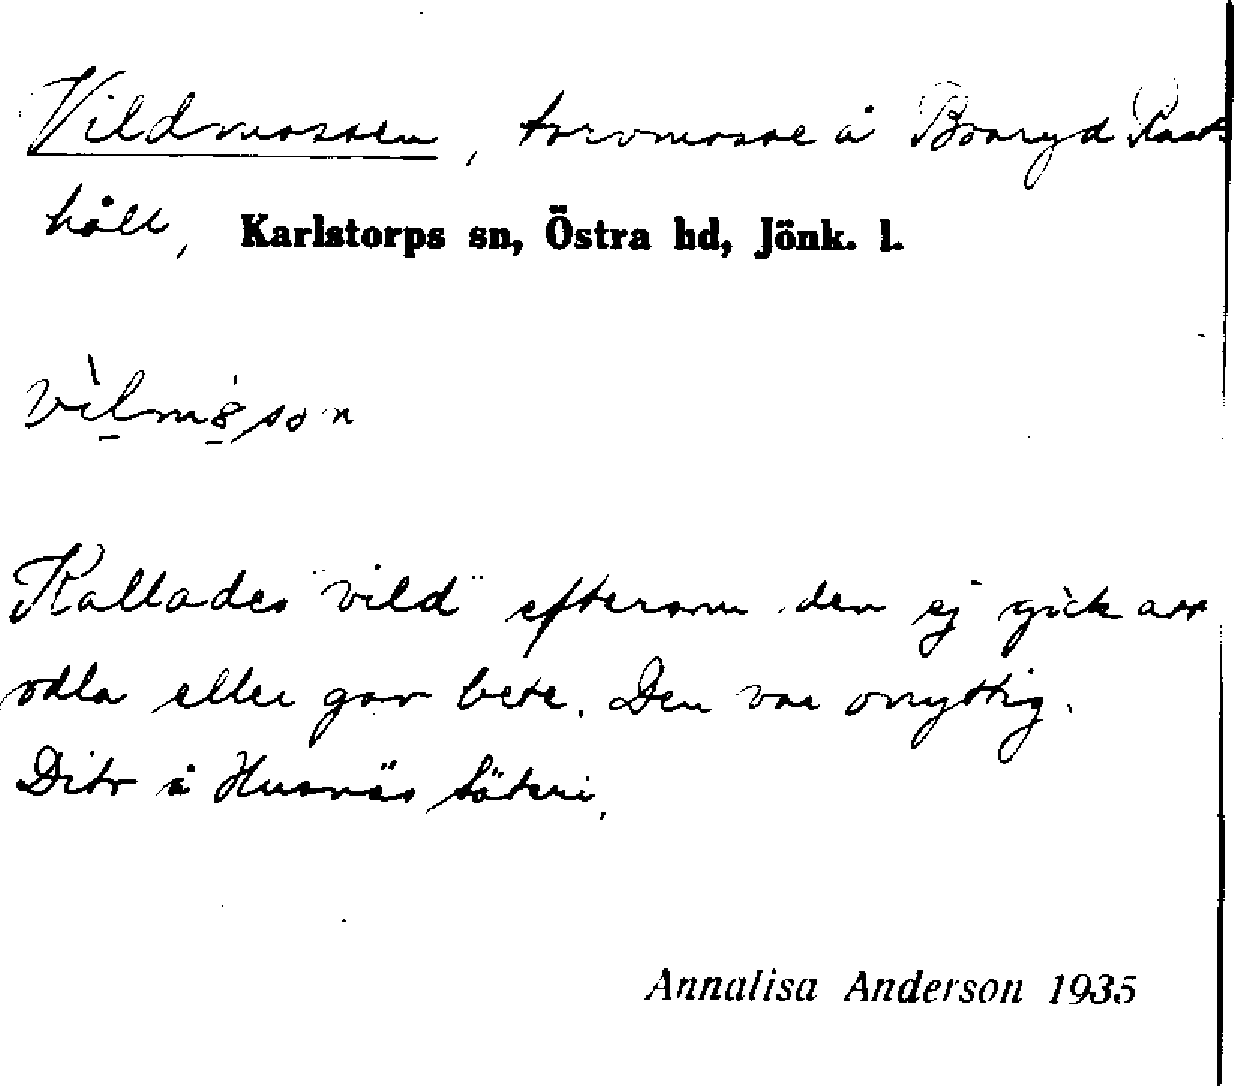 Vildmossen, torvmosse å Boaryd Rast
håll, Karlstorps sn, Östra hd, Jönk. l.
Kallades "vild" eftersom den ej gick att
odla eller gav bete. Den var onyttig.
Dito å Husnäs Säteri,
Annalisa Anderson 1935